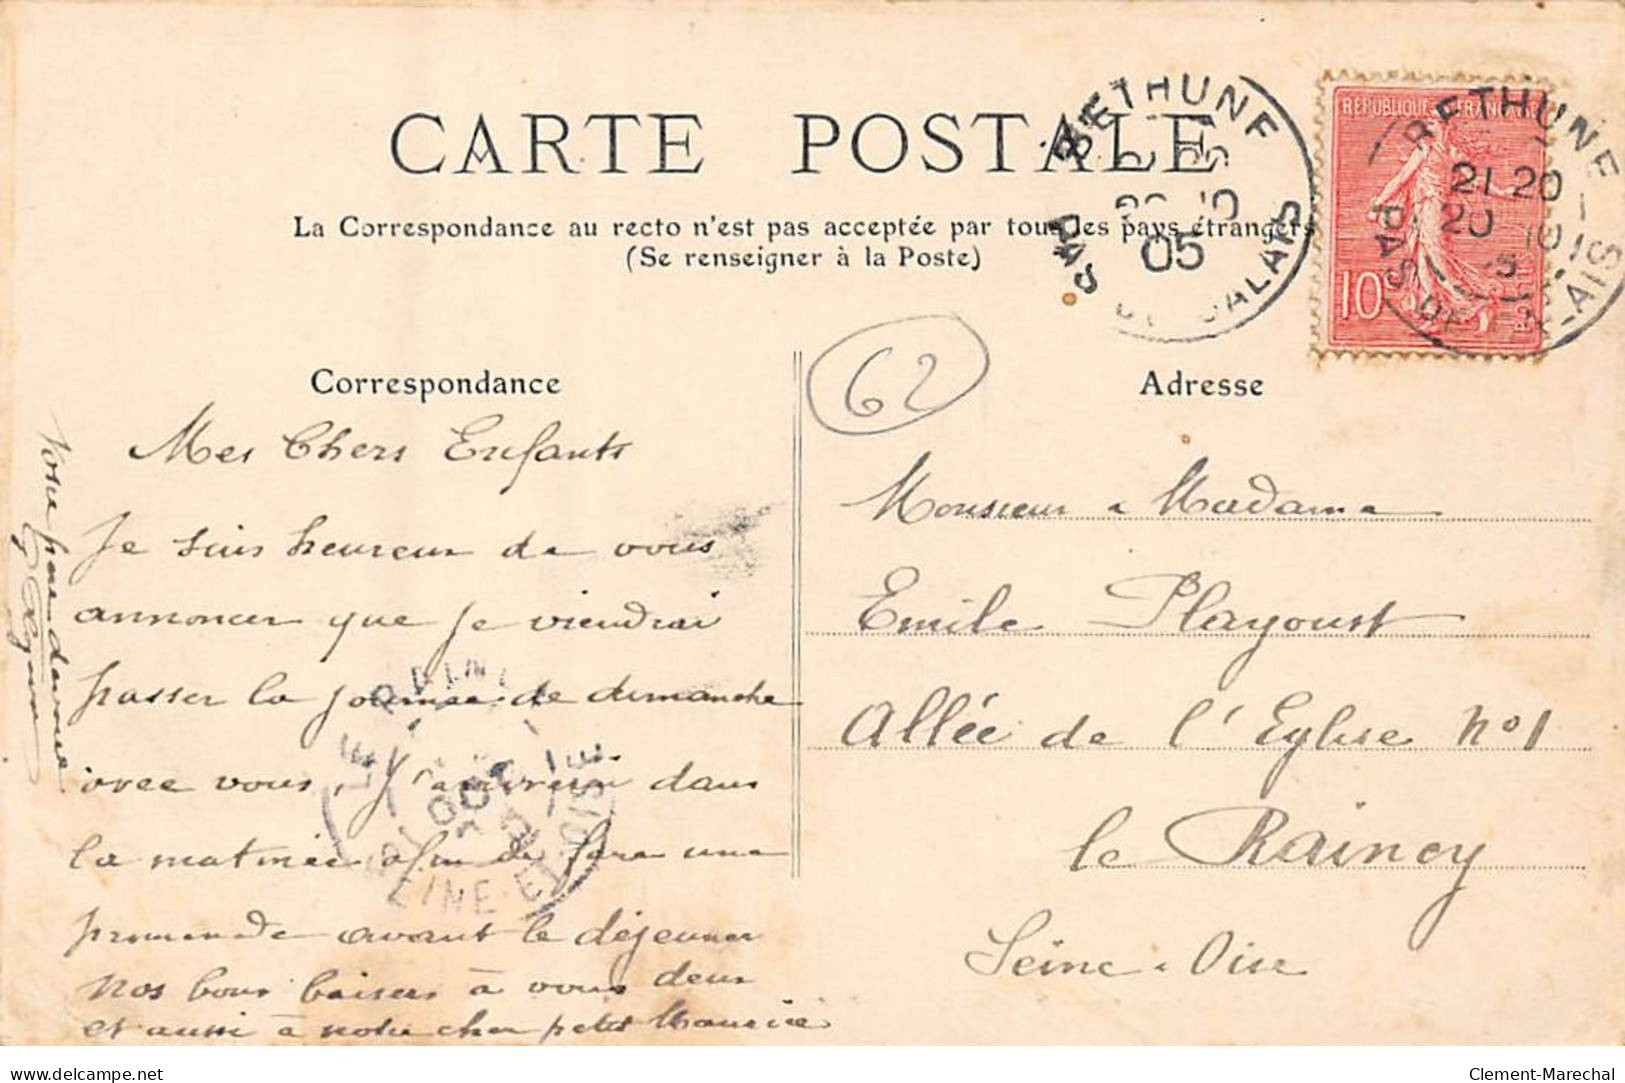 CARTE POSTALE
La Correspondance au recto n'est pas acceptée par tous les pays étrangers
(Se renseigner à la Poste)
BETHUNE
20 10
05
PAS DE CALAIS
REPUBLIQUE FRANÇAISE
10
BETHUNE
21 20
20 10
5
PAS DE CALAIS
62
Correspondance
Mes Chers Enfants
Je suis heureux de vous
annoncer que je viendrai
passer la journée de dimanche
avec vous, j'arriverai dans
la matinée afin de faire une
promenade avant le déjeuner
Nos bons baisers à vous deux
et aussi à notre cher petit Maurice
Votre père dévoué
LE RAINCY
21 OCT
SEINE ET OISE
Adresse
Monsieur & Madame
Emile Playoust
Allée de l'Eglise No 1
le Raincy
Seine & Oise
delcampe.net
Clement-Marechal